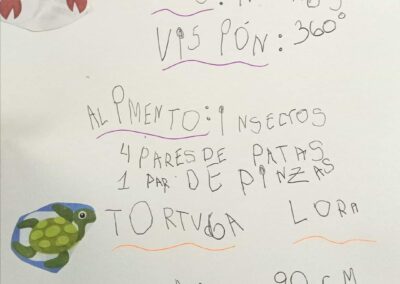 VISPÓN: 360°
ALIMENTO: INSECTOS
4 PARES DE PATAS
1 PAR DE PINZAS
TORTUGA LORA
90 CM